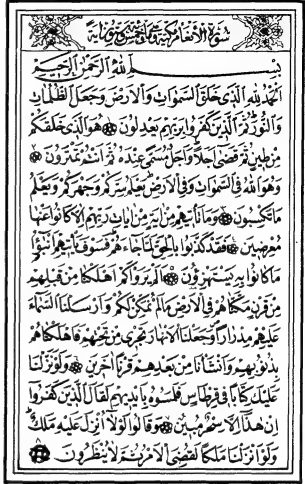 سورة الأنعام مكية
بسم الله الرحمن الرحيم
الحمد لله الذي خلق السموات والأرض وجعل الظلمات
والنور ثم الذين كفروا بربهم يعدلون هو الذي خلقكم
من طين ثم قضى أجلا وأجل مسمى عنده ثم أنتم تمترون
وهو الله في السموات وفي الأرض يعلم سركم وجهركم ويعلم
ما تكسبون وما تأتيهم من آية من آيات ربهم إلا كانوا عنها
معرضين فقد كذبوا بالحق لما جاءهم فسوف يأتيهم أنبؤا
ما كانوا به يستهزؤن ألم يروا كم أهلكنا من قبلهم
من قرن مكناهم في الأرض ما لم نمكن لكم وأرسلنا السماء
عليهم مدرارا وجعلنا الأنهار تجري من تحتهم فأهلكناهم
بذنوبهم وأنشأنا من بعدهم قرنا آخرين ولو نزلنا
عليك كتابا في قرطاس فلمسوه بأيديهم لقال الذين كفروا
إن هذا إلا سحر مبين وقالوا لولا أنزل عليه ملك
ولو أنزلنا ملكا لقضي الأمر ثم لا ينظرون